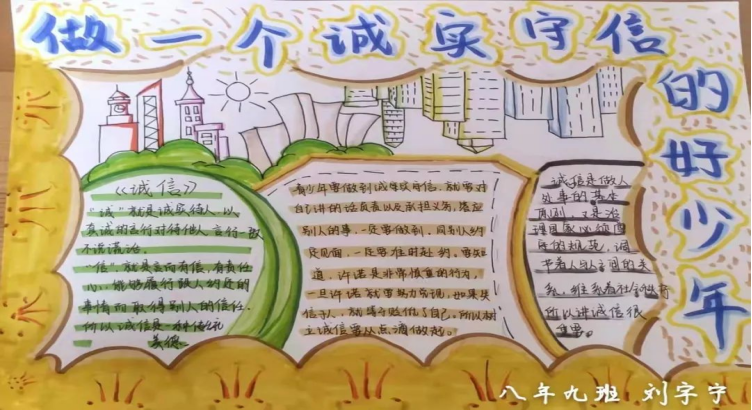 做一个诚实守信
的好少年
《诚信》
"诚"就是诚实待人、以
真诚的言行对待他人、言行一致
不说谎话。
"信"就是言而有信,有责任
心,能够履行跟人约定的
事情而取得别人的信任。
所以诚信是一种传统
美德
青少年要做到诚实守信,就要对
自己讲的话负责以及承担义务,答应
别人的事,一定要做到,同别人约
定见面,一定要准时赴约。要知
道,许诺是非常慎重的行为,
一旦许诺就要努力实现,如果失
信于人,就等于贬低了自己。所以树
立诚信要从点滴做起。
诚信是做人
处事的基本
原则,又是治
理国家必须遵
守的规范,调
节着人与人之间的关
系,维系着社会秩序
所以讲诚信很
重要。
八年九班 刘字宁